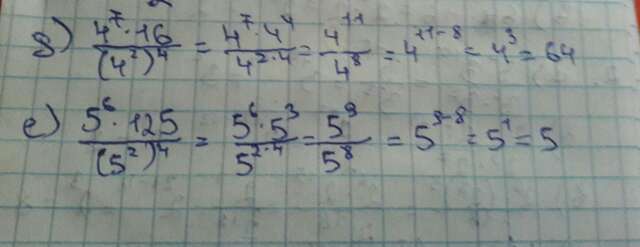 д) 4⁷·16/(4²)⁴ = 4⁷·4⁴/4²·⁴ = 4¹¹/4⁸ = 4¹¹⁻⁸ = 4³ = 64
е) 5⁶·125/(5²)⁴ = 5⁶·5³/5²·⁴ = 5⁹/5⁸ = 5⁹⁻⁸ = 5¹ = 5